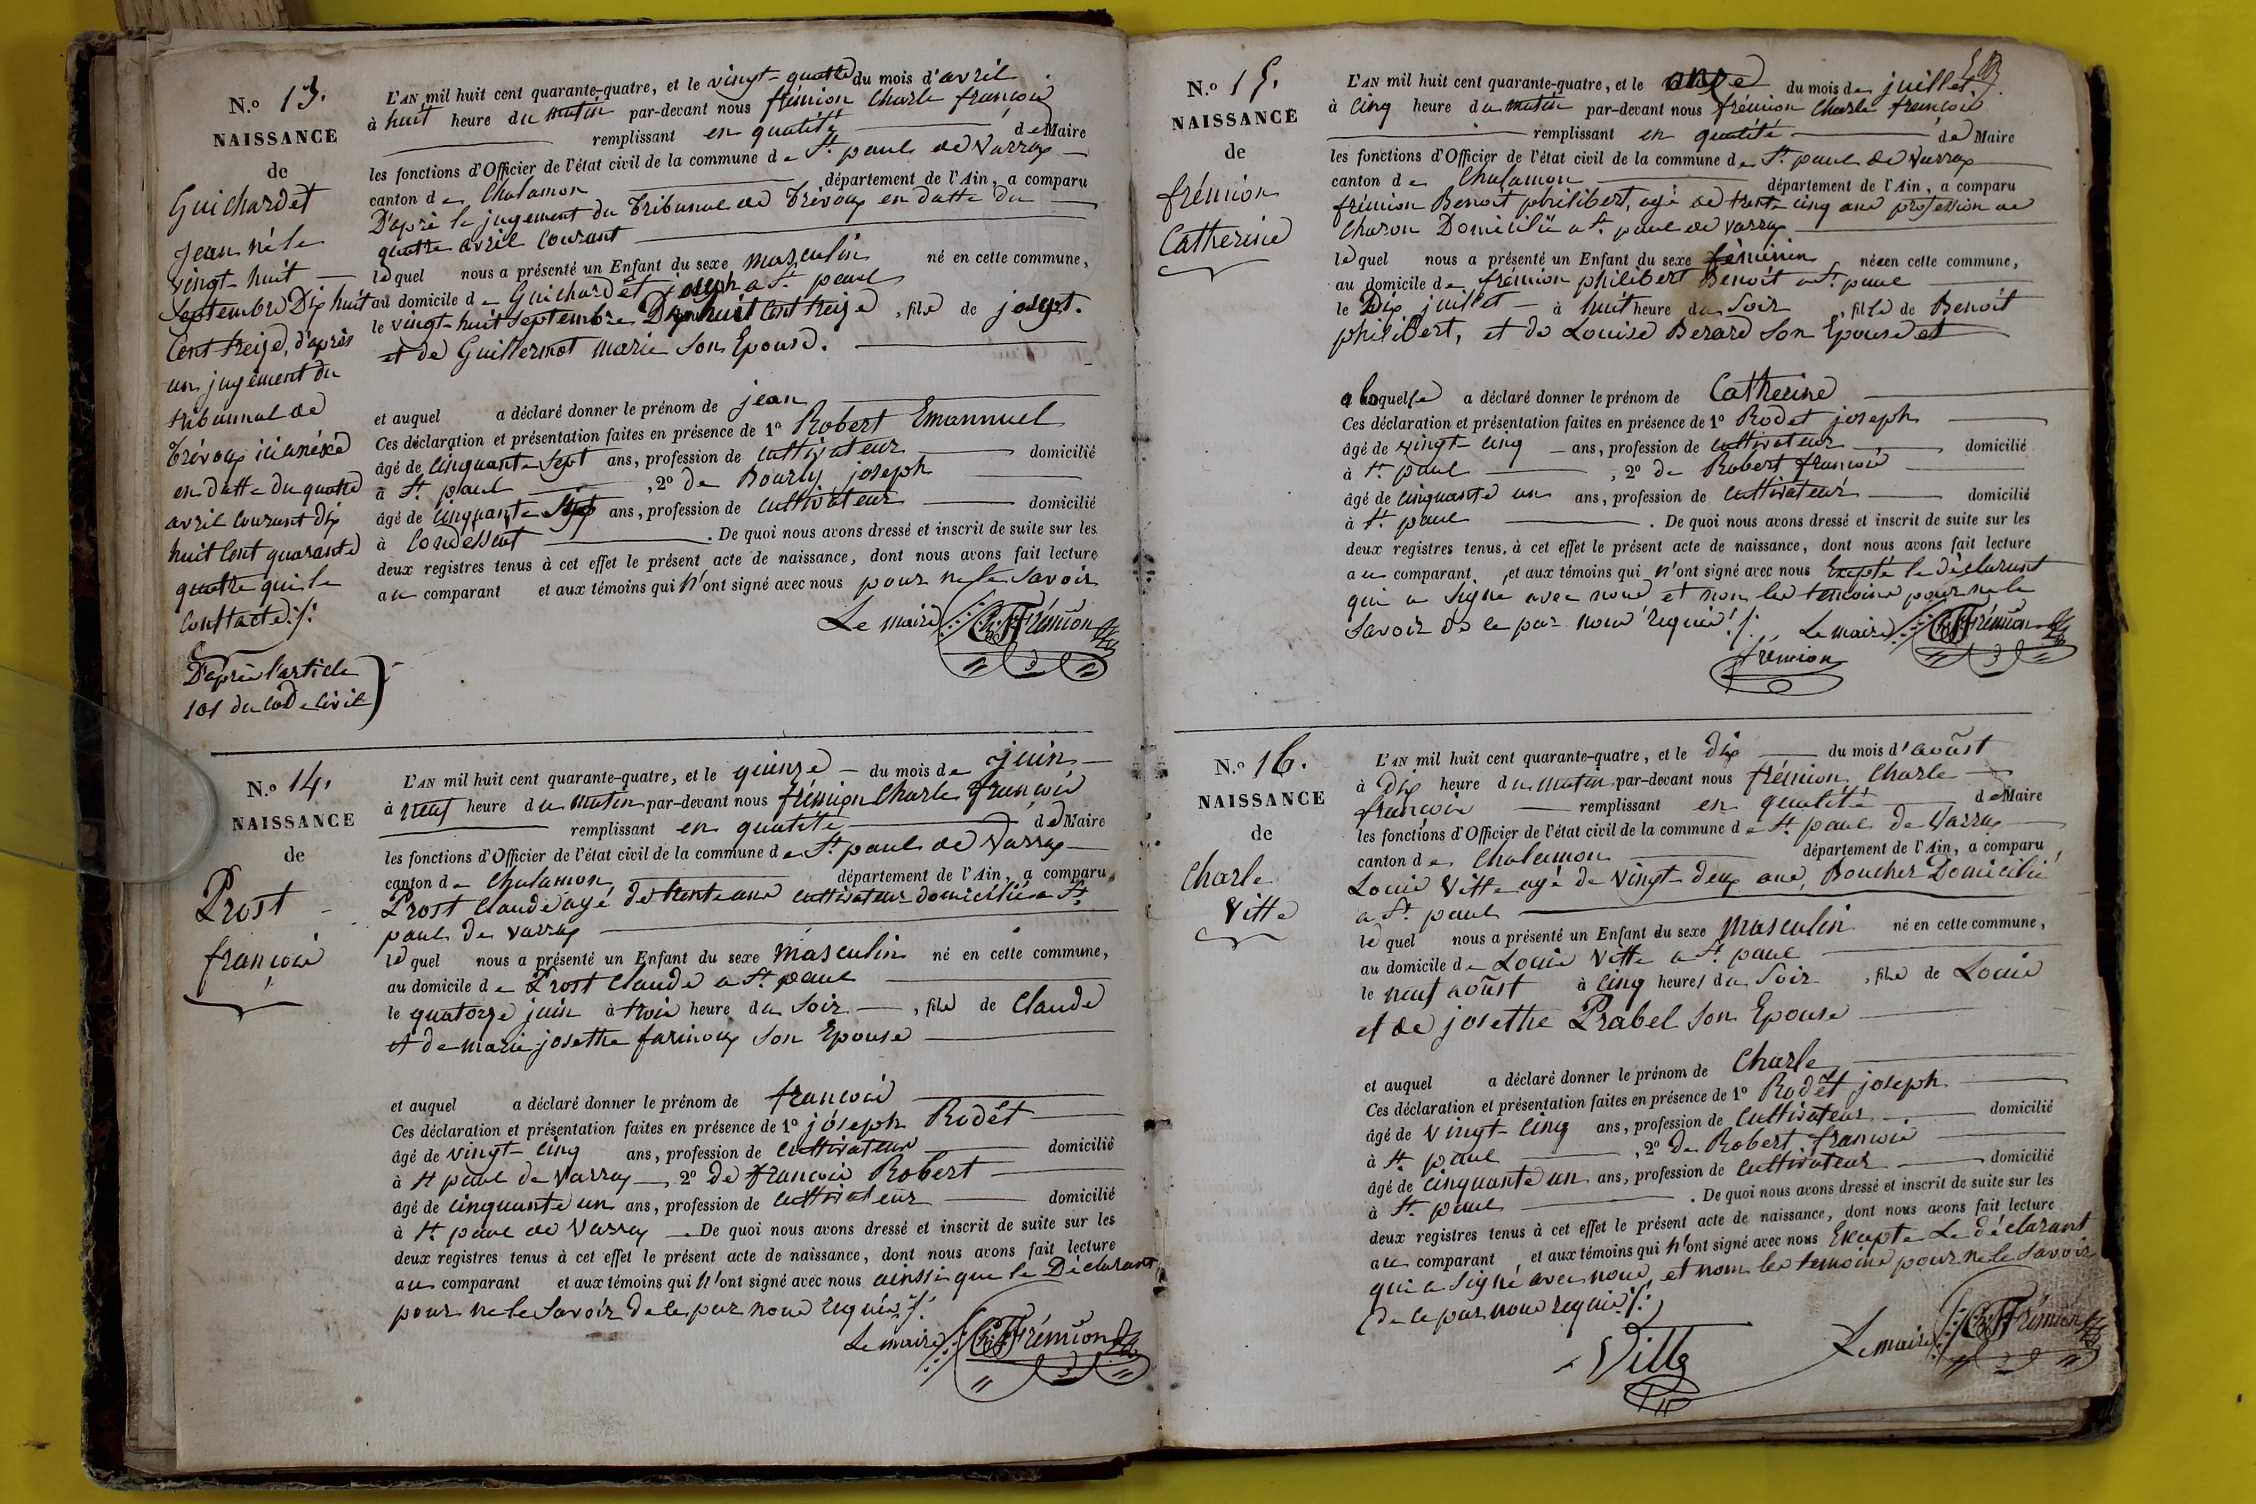 N.º 13.
NAISSANCE
de
Guichardet
Jean né le
vingt-huit
Septembre Dix huit
Cent treize, d'après
un jugement du
tribunal de
trévoux ici anéxé
en datte du quatre
avril courant dix
huit Cent quarante
quatre qui le
Conttacte ./.
D'après l'article
101 du Code Civil
L'AN mil huit cent quarante-quatre, et le vingt-quatre du mois d'avril
à huit heure du matin par-devant nous frémion Charle francois
remplissant en qualité de Maire
les fonctions d'Officier de l'état civil de la commune de St. paul de Varrax
canton de Chalamon département de l'Ain, a comparu
D'aprè le jugement du Tribunal de Trévoux en datte du
quatre avril Courant
lequel nous a présenté un Enfant du sexe masculin né en cette commune,
au domicile de Guichardet joseph a St. paul
le vingt-huit Septembre Dix huit Cent treize, fils de josept.
et de Guillermot marie Son Epouse.
et auquel a déclaré donner le prénom de jean
Ces déclaration et présentation faites en présence de 1º Robert Emannuel
âgé de Cinquante Sept ans, profession de Cultivateur domicilié
à St. paul, 2º de Bourly joseph
âgé de Cinquante ans, profession de Cultivateur domicilié
à Condessiat. De quoi nous avons dressé et inscrit de suite sur les
deux registres tenus à cet effet le présent acte de naissance, dont nous avons fait lecture
au comparant et aux témoins qui n'ont signé avec nous pour ne le Savoir
Le maire Frémion
N.º 14.
NAISSANCE
de
Prost
francois
L'AN mil huit cent quarante-quatre, et le quinze du mois de juin
à neuf heure du matin par-devant nous frémion Charle francois
remplissant en qualité de Maire
les fonctions d'Officier de l'état civil de la commune de St. paul de Varrax
canton de Chalamon département de l'Ain, a comparu
Prost Claude agé de trente ans cultivateur domicilié a St.
paul de Varrax
lequel nous a présenté un Enfant du sexe masculin né en cette commune,
au domicile de Prost Claude a St. paul
le quatorze juin à trois heure du Soir, fils de Claude
et de marie josethe farinoux Son Epouse
et auquel a déclaré donner le prénom de francois
Ces déclaration et présentation faites en présence de 1º joseph Rodet
âgé de vingt-cinq ans, profession de cultivateur domicilié
à St paul de Varrax, 2º De francois Robert
âgé de Cinquante un ans, profession de Cultivateur domicilié
à St. paul de Varrax. De quoi nous avons dressé et inscrit de suite sur les
deux registres tenus à cet effet le présent acte de naissance, dont nous avons fait lecture
au comparant et aux témoins qui n'ont signé avec nous ainssi que le Déclarant
pour ne le Savoir de le par nous requis ./.
Le maire Frémion
N.º 15.
NAISSANCE
de
frémion
Catherine
L'AN mil huit cent quarante-quatre, et le onze du mois de juillet
à Cinq heure du matin par-devant nous frémion Charle francois
remplissant en qualité de Maire
les fonctions d'Officier de l'état civil de la commune de St. paul de Varrax
canton de Chalamon département de l'Ain, a comparu
frémion Benoit philibert, agé de trente cinq ans profession de
Charon Domicilié a St. paul de Varrax
lequel nous a présenté un Enfant du sexe féminin née en cette commune,
au domicile de frémion philibert Benoit a St. paul
le Dix juillet à huit heure du Soir, fille de Benoit
philibert, et de Louise Berard Son Epouse et
a laquelle a déclaré donner le prénom de Catherine
Ces déclaration et présentation faites en présence de 1º Rodet joseph
âgé de vingt-cinq ans, profession de Cultivateur domicilié
à St. paul, 2º de Robert francois
âgé de Cinquante un ans, profession de Cultivateur domicilié
à St. paul. De quoi nous avons dressé et inscrit de suite sur les
deux registres tenus, à cet effet le présent acte de naissance, dont nous avons fait lecture
au comparant, et aux témoins qui n'ont signé avec nous Excepté le déclarant
qui a Signé avec nous et non les temoins pour ne le
Savoir de le par nous requis ./. Le maire Frémion
frémion
N.º 16.
NAISSANCE
de
Charle
Vitte
L'AN mil huit cent quarante-quatre, et le dix du mois d'août
à Dix heure du matin par-devant nous frémion Charle
francois remplissant en qualité de Maire
les fonctions d'Officier de l'état civil de la commune de St. paul de Varrax
canton de Chalamon département de l'Ain, a comparu
Louis Vitte agé de Vingt-deux ans, Boucher Domicilié
a St. paul
lequel nous a présenté un Enfant du sexe masculin né en cette commune,
au domicile de Louis Vitte a St. paul
le neuf août à Cinq heures du Soir, fils de Louis
et de josethe Prabel Son Epouse
et auquel a déclaré donner le prénom de Charle
Ces déclaration et présentation faites en présence de 1º Rodet joseph
âgé de vingt-cinq ans, profession de Cultivateur domicilié
à St. paul, 2º de Robert francois
âgé de Cinquante un ans, profession de Cultivateur domicilié
à St. paul. De quoi nous avons dressé et inscrit de suite sur les
deux registres tenus à cet effet le présent acte de naissance, dont nous avons fait lecture
au comparant et aux témoins qui n'ont signé avec nous Excepte Le déclarant
qui a Signé avec nous, et nom les temoins pour ne le Savoir
de le par nous requis ./.
Vitte Le maire Frémion